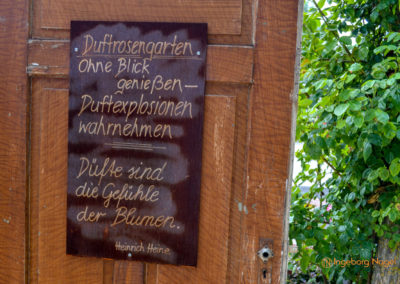 Duftrosengarten
Ohne Blick
genießen –
Duftexplosionen
wahrnehmen
Düfte sind
die Gefühle
der Blumen.
Heinrich Heine
Ingeborg Nage